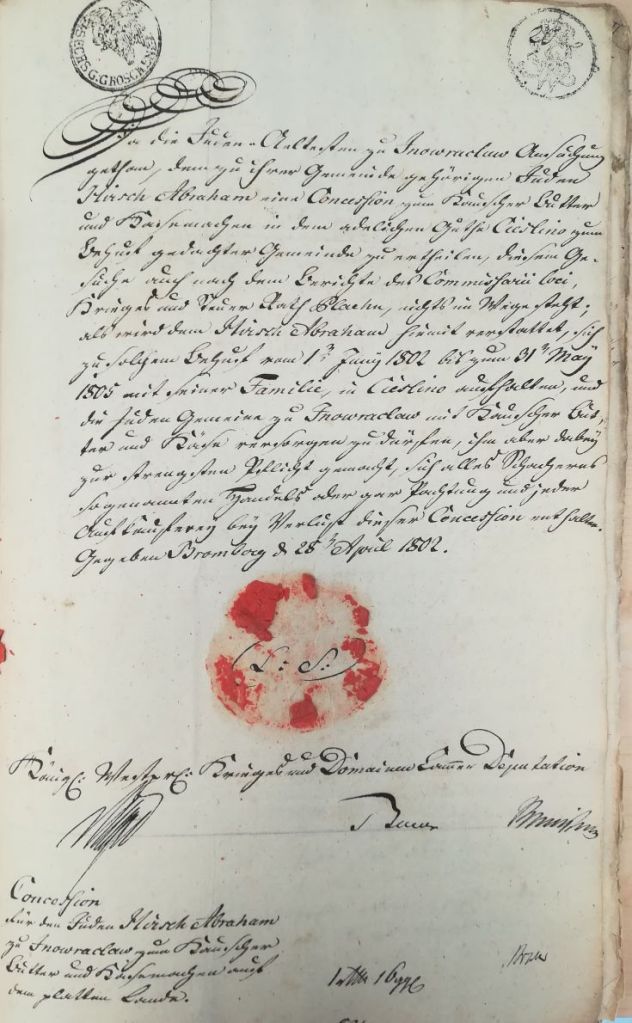 SECHS G. GROSCHEN
Da die Juden-Aeltesten zu Inowraclaw Ansuchung
gethan, dem zu ihrer Gemeinde gehörigen Juden
Hirsch Abraham eine Concession zum Kauscher Butter
und Käsemachen in dem adelichen Guthe Cieslino zum
Behuf gedachter Gemeinde zu ertheilen, diesem Ge-
suche auch nach dem Berichte des Commissarii loci,
Krieges und Steuer Rath Plaehn, nichts im Wege steht;
als wird dem Hirsch Abraham hiemit verstattet, sich
zu solchem Behuf vom 1t Juny 1802 bis zum 31t May
1805 mit seiner Familie, in Cieslino aufhalten, und
die Juden Gemeine zu Inowraclaw mit Kauscher But-
ter und Käse versorgen zu dürfen, ihm aber dabey
zur strengsten Pflicht gemacht, sich alles Schacherns
sogenannten Handels oder gar Pachtung und jeder
Aufkäuferey bey Verlust dieser Concession enthalten.
Gegeben Bromberg d 28t April 1802.
L: S:
Königl: Westpr: Krieges und Domainen Cammer Deputation
Concession
für den Juden Hirsch Abraham
zu Inowraclaw zum Kauscher
Butter und Käsemachen auf
dem platten Lande.
1 rthlr 16 ggr